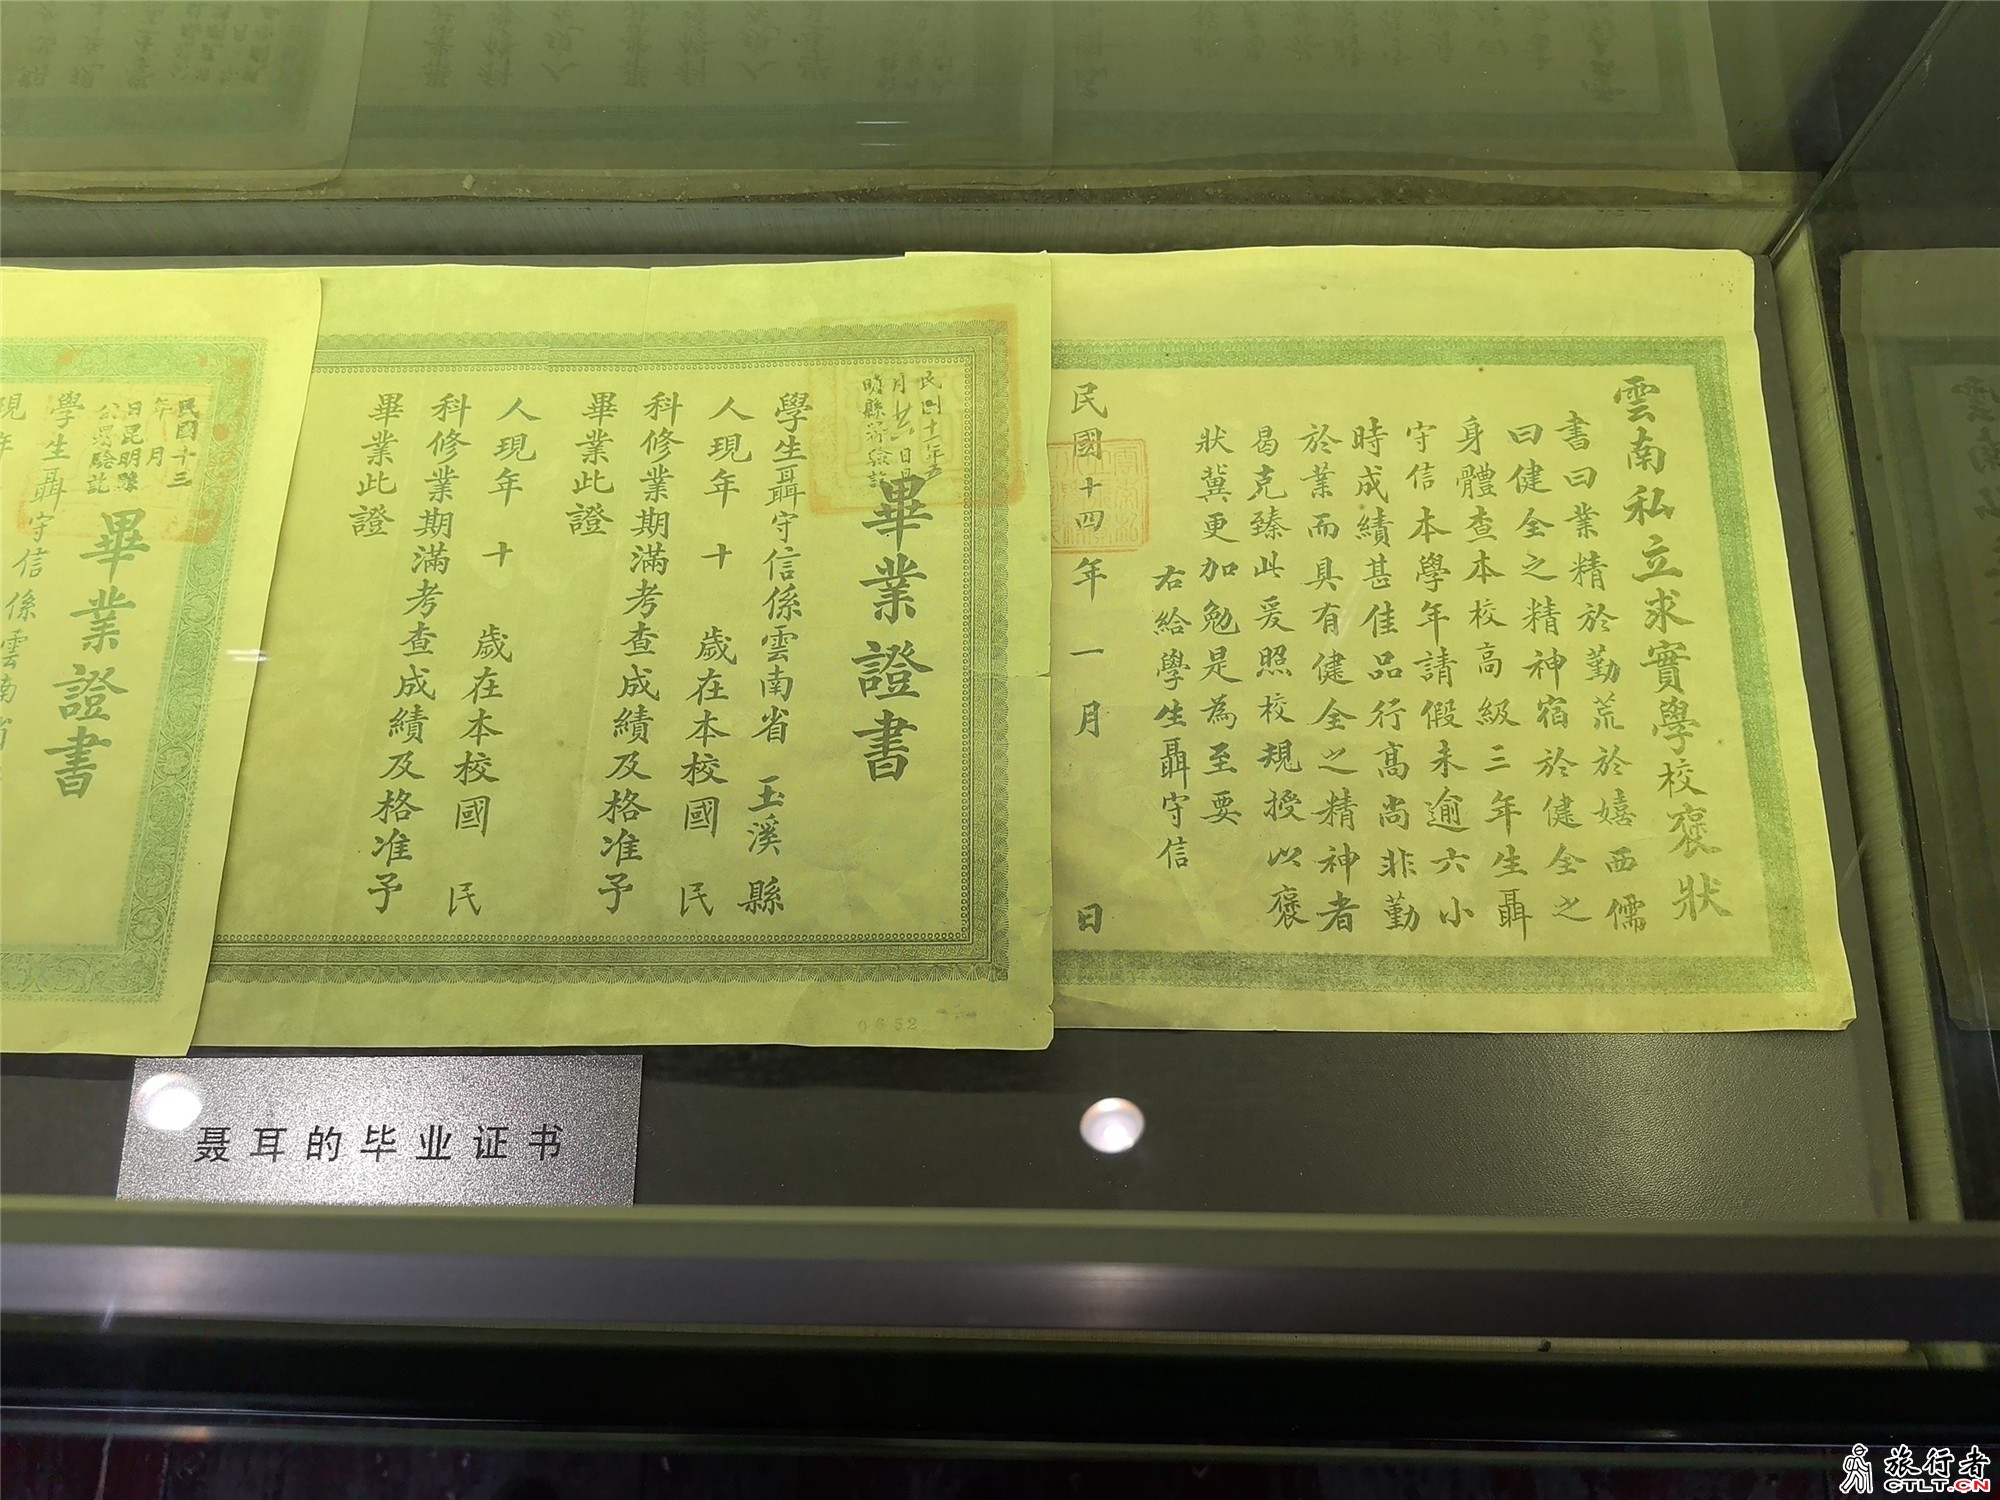 雲南私立求實學校褒狀
書曰業精於勤荒於嬉西儒
曰健全之精神宿於健全之
身體查本校高級三年生聶
守信本學年請假未逾六小
時成績甚佳品行高尚非勤
於業而具有健全之精神者
曷克臻此爰照校規授以褒
狀冀更加勉是為至要
右給學生聶守信
民國十四年一月 日
畢業證書
學生聶守信係雲南省玉溪縣
人現年十 歲在本校國 民
科修業期滿考查成績及格准予
畢業此證
人現年十 歲在本校國 民
科修業期滿考查成績及格准予
畢業此證
0652
民國十三
年 月
日昆明縣
公署驗訖
畢業證書
學生聶守信係雲南省
現年
聂耳的毕业证书
旅行者
CTLT.CN